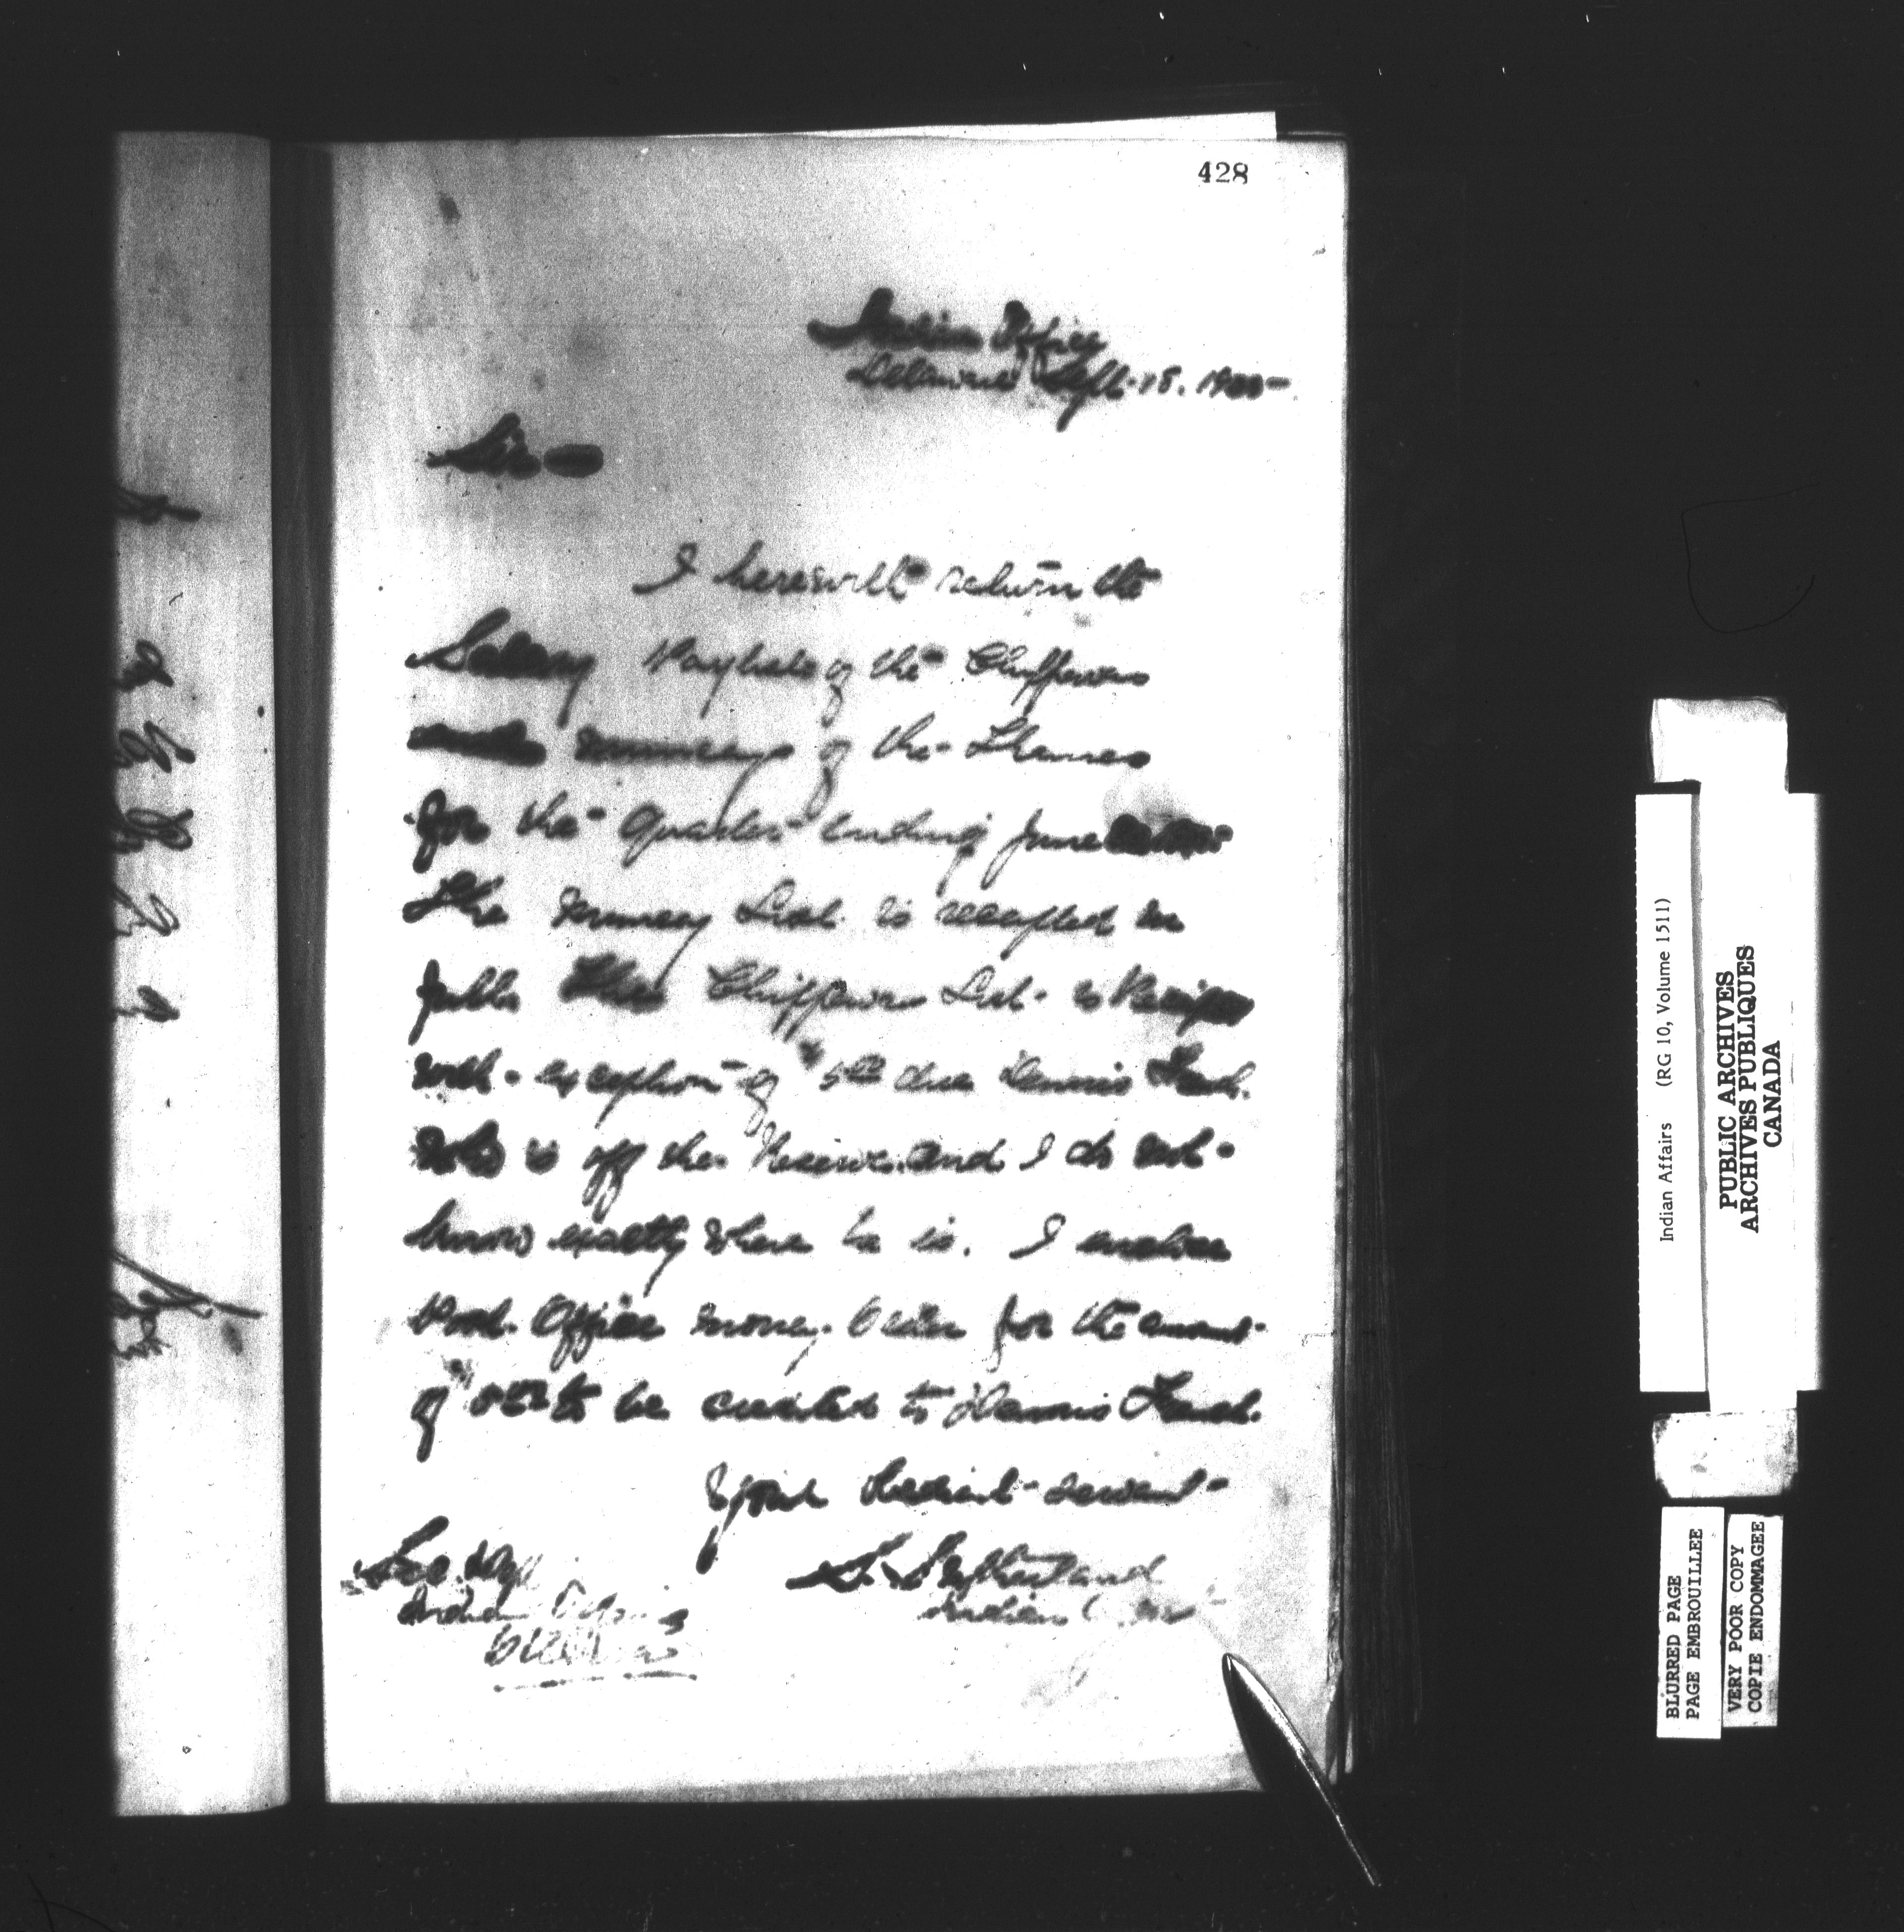 428
Indian Office
Delaware Sept. 18. 
Sir
I herewith return the
Salary Paylists of the Chippewas
and Munceys of the Thames
for the Quarter ending June
The Muncey List is receipted in
full The Chippewa List is Receipted
with exception of due Dennis
who is off the Reserve and I do not
know exactly where he is. I enclose
Post Office money Order for the amount
of to be credited to Dennis
Your Obedient servant
S. Sutherland
Indian
Indian
Ottawa
Indian Affairs (RG 10, Volume 1511)
PUBLIC ARCHIVES
ARCHIVES PUBLIQUES
CANADA
BLURRED PAGE
PAGE EMBROUILLEE
VERY POOR COPY
COPIE ENDOMMAGEE